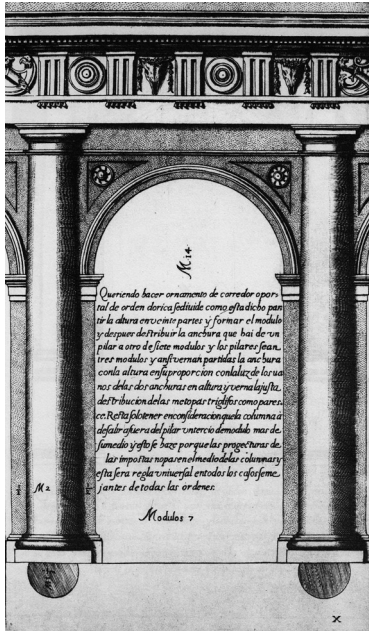 M 14
Queriendo hacer ornamento de corredor o por=
tal de orden dorica se diuide como esta dicho par
tir la altura en veinte partes y formar el modulo
y despues destribuir la anchura que hai de vn
pilar a otro de siete modulos y los pilares sean
tres modulos y ansi vernan partidas la anchura
con la altura en su proporcion con la luz de los ua
nos de las dos anchuras en altura y uerna la justa
destribucion de las metopas triglifos como pares=
ce. Resta solo tener en consideracion que la columna à
de salir afuera del pilar vn tercio de modulo mas de
su medio y esto se haze porque las progecturas de
las impostas no pasen el medio de las columnas y
esta sera regla vniuersal en todos los casos seme
jantes de todas las ordenes.
M 2
Modulos 7
X